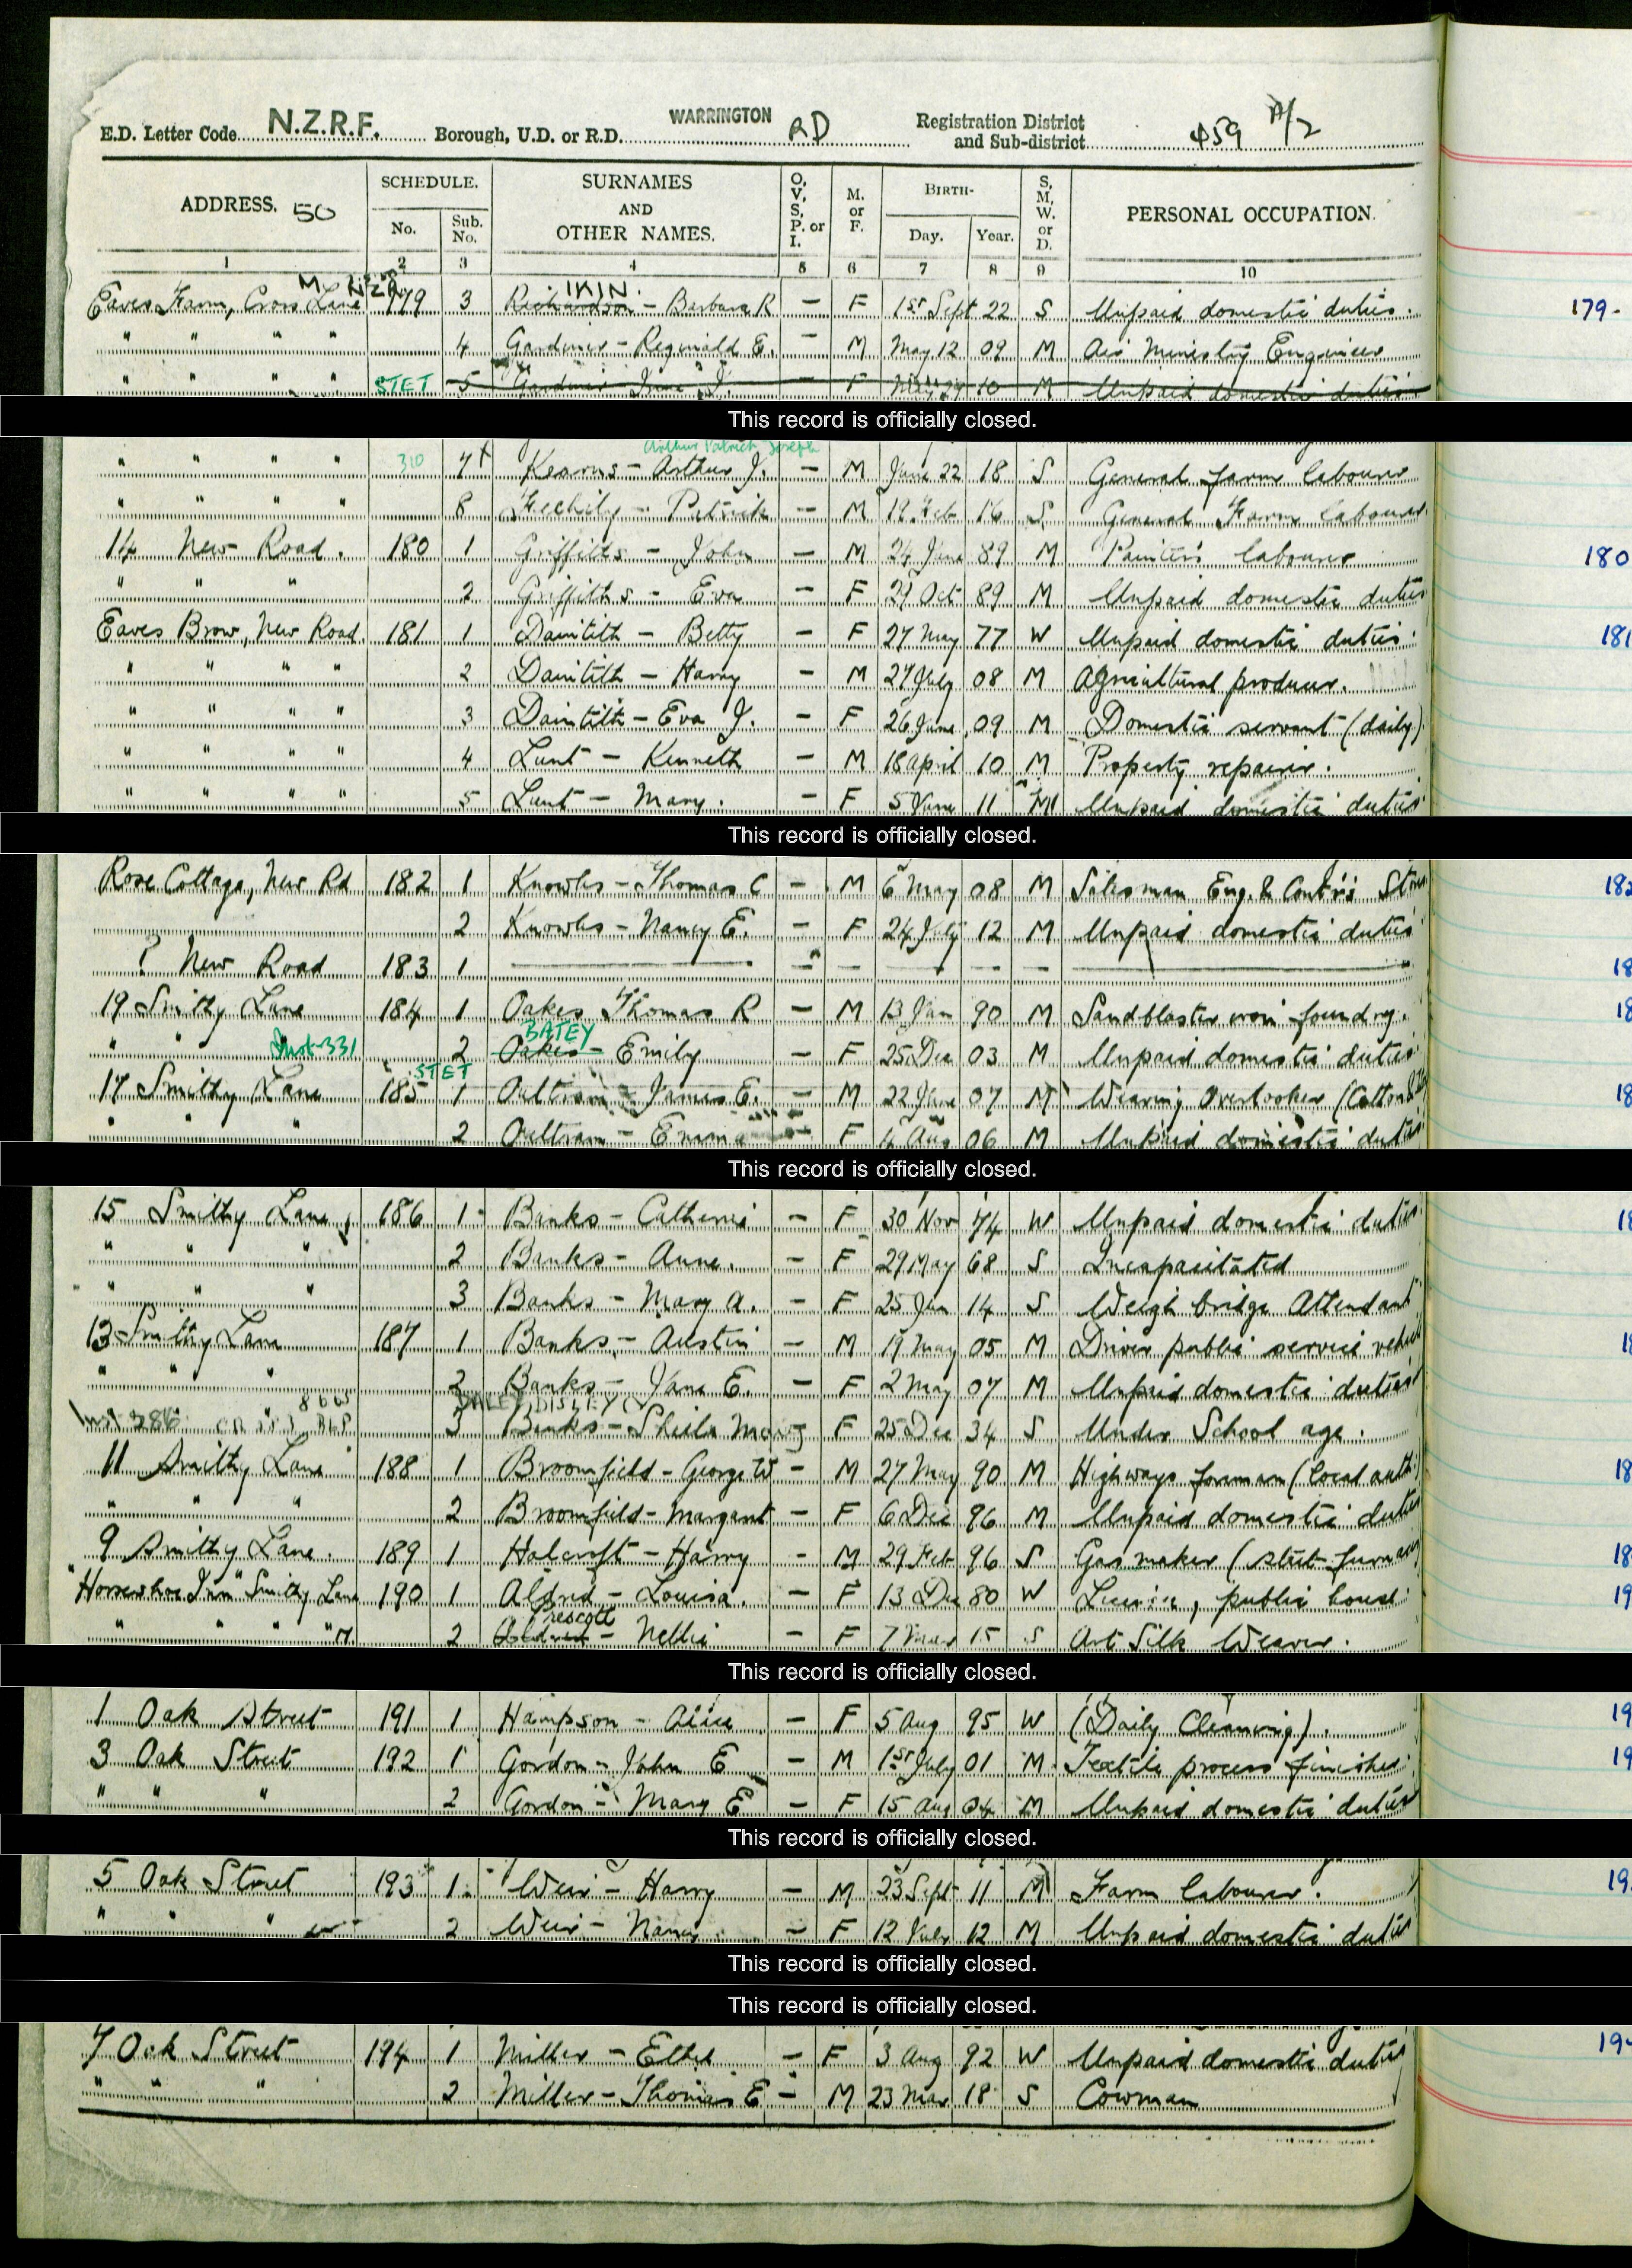 E.D. Letter Code N.Z.R.F. Borough, U.D. or R.D. WARRINGTON RD Registration District and Sub-district 459 A/2
ADDRESS. 50 SCHEDULE. No. Sub. No. SURNAMES AND OTHER NAMES. O, V, S, P. or I. M. or F. BIRTH- Day. Year. S, M, W. or D. PERSONAL OCCUPATION.
1 2 3 4 5 6 7 8 9 10
IKIN.
Eaves Farm, Cross Lane 179 3 Richardson - Barbara R - F 1st Sept 22 S Unpaid domestic duties. 179-
" " " " 4 Gardiner - Reginald E. - M May 12 09 M Air Ministry Engineer
" " " " STET 5 Gardiner - - F 10 M Unpaid domestic duties
This record is officially closed.
Arthur Patrick Joseph
" " " " 310 7 Kearns - Arthur J. - M June 22 18 S General farm labourer
" " " " 8 - Patrick - M 16 S General Farm labourer
14 New Road. 180 1 Griffiths - John - M 24 June 89 M Painter's labourer 180
" " " 2 Griffiths - Eva - F 29 Oct 89 M Unpaid domestic duties
Eaves Brow, New Road. 181 1 Daintith - Betty - F 27 May 77 W Unpaid domestic duties. 181
" " " " 2 Daintith - Harry - M 27 July 08 M Agricultural producer.
" " " " 3 Daintith - Eva J. - F 26 June 09 M Domestic servant (daily)
" " " " 4 Lunt - Kenneth - M 18 April 10 M Property repairer.
" " " " 5 Lunt - Mary. - F 5 June 11 M Unpaid domestic duties
This record is officially closed.
Rose Cottage, New Rd 182 1 Knowles - Thomas C - M 6 May 08 M Salesman Eng. & Contr's Stores 182
2 Knowles - Nancy E. - F 24 July 12 M Unpaid domestic duties
? New Road 183 1 - - - - - - 18
19 Smithy Lane 184 1 Oakes Thomas R - M 13 Jan 90 M Sandblaster iron foundry. 18
BATEY
" " 331 2 Oakes - Emily - F 25 Dec 03 M Unpaid domestic duties
STET
17 Smithy Lane 185 1 Oultram - James E. - M 22 June 07 M Weaving Overlooker (Cotton 18
" " " 2 Oultram - Emma - F Aug 06 M Unpaid domestic duties
This record is officially closed.
15 Smithy Lane 186 1 Banks - Catherine - F 30 Nov 74 W Unpaid domestic duties 18
" " " 2 Banks - Anne. - F 29 May 68 S Incapacitated
" " " 3 Banks - Mary A. - F 25 Jan 14 S Weigh bridge Attendant
13 Smithy Lane 187 1 Banks - Austin - M 19 May 05 M Driver public service vehicle 18
" " " 2 Banks - Jane E. - F 2 May 07 M Unpaid domestic duties
3 Banks - Sheila Mary F 25 Dec 34 S Under School age.
11 Smithy Lane 188 1 Broomfield - George W - M 27 May 90 M Highways foreman (local auth 18
" " " 2 Broomfield - Margaret - F 6 Dec 96 M Unpaid domestic duties
9 Smithy Lane. 189 1 Holcroft - Harry - M 29 Feb 96 S Gas maker (steel furnaces 18
"Horseshoe Inn" Smithy Lane 190 1 Aldred - Louisa. - F 13 Dec 80 W Licensee, public house 19
Prescott
" " " " 2 Aldred - Nellie - F 7 Mar 15 S Art Silk Weaver.
This record is officially closed.
1 Oak Street 191 1 Hampson - Alice - F 5 Aug 95 W (Daily Cleaning). 19
3 Oak Street 192 1 Gordon - John E - M 1st July 01 M Textile process finisher 19
" " " 2 Gordon - Mary E - F 15 Aug 04 M Unpaid domestic duties
This record is officially closed.
5 Oak Street 193 1. Weir - Harry - M 23 Sept 11 M Farm labourer. 19
" " " 2 Weir - Nancy. - F 12 July 12 M Unpaid domestic duties
This record is officially closed.
This record is officially closed.
7 Oak Street 194 1 Miller - Ethel - F 3 Aug 92 W Unpaid domestic duties 194
" " " 2 Miller - Thomas E - M 23 Mar 18 S Cowman